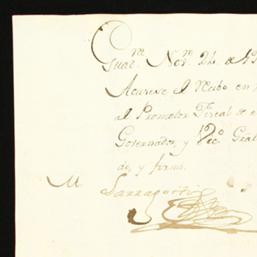 Gual. Nov.^e 24. de 19
Acusese el Recibo en
al Promotor Fiscal de e
Governador, y Vic.^o Gral
do, y firmó.
M Larragoiti